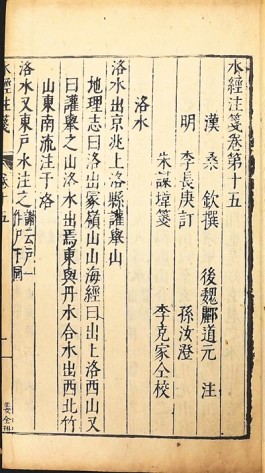 水經注箋卷第十五
漢 桑 欽撰 後魏酈道元 注
明 李長庚訂 孫汝澄
朱謀㙔箋 李克家仝校
洛水
洛水出京兆上洛縣讙舉山
地理志曰洛出冢嶺山山海經曰出上洛西山又
曰讙舉之山洛水出焉東與丹水合水出西北竹
山東南流注于洛
洛水又東尸水注之 謝云尸一作戸下同
水經注箋 卷十五 一